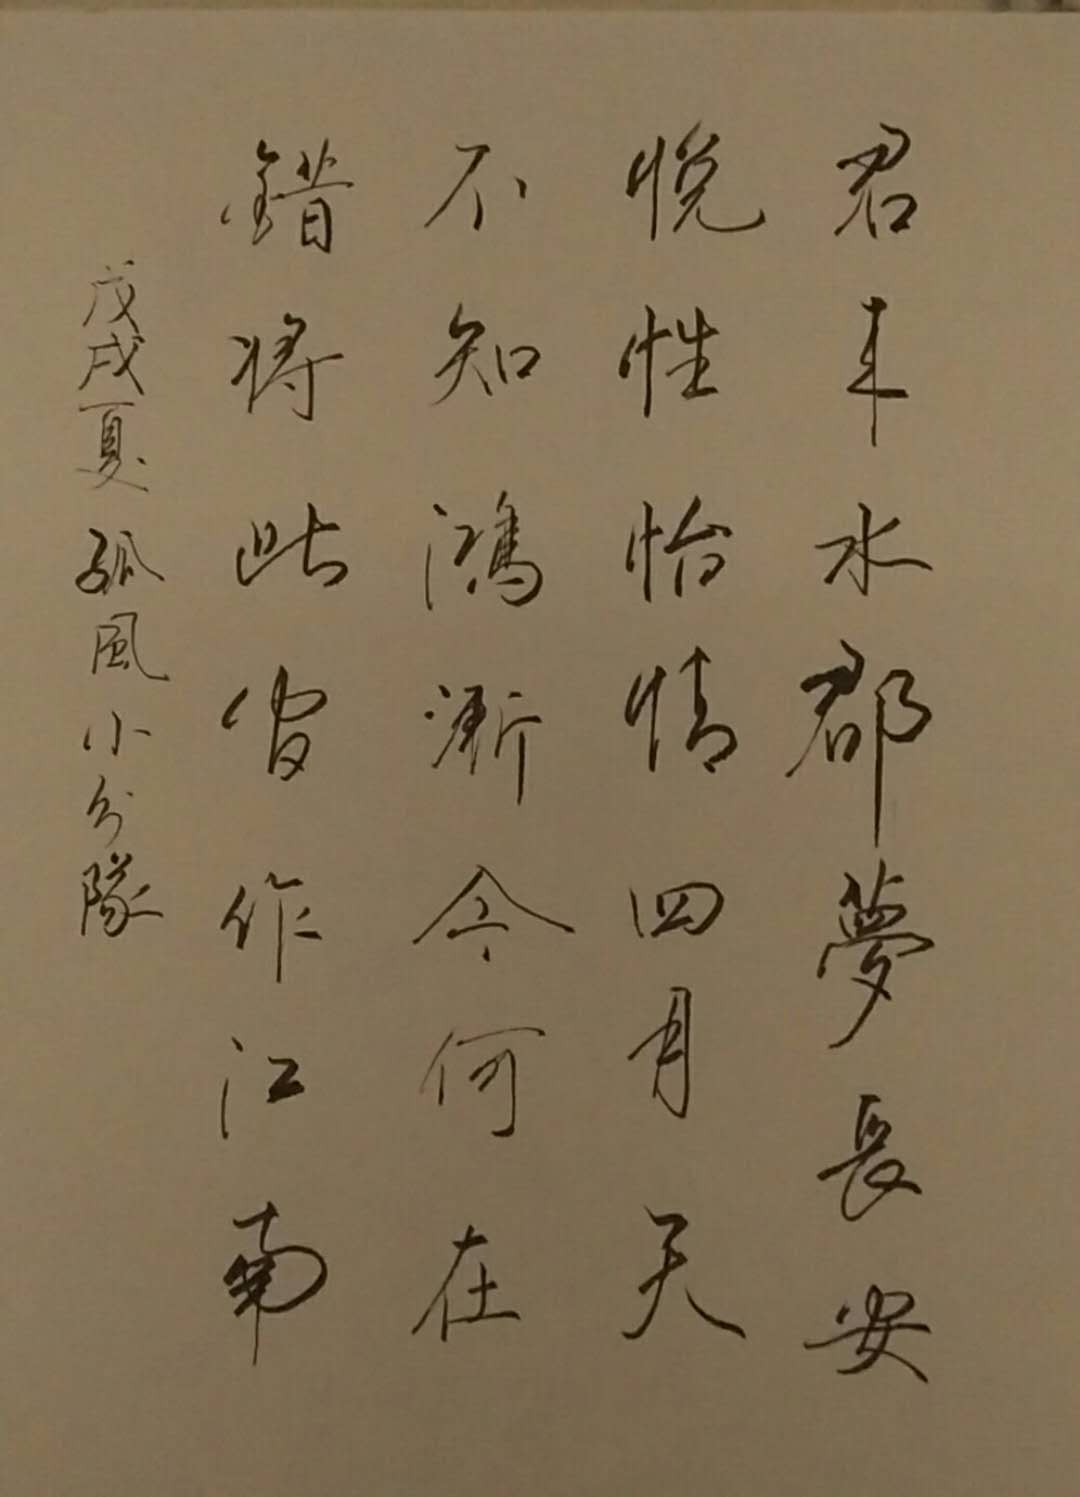 君来水郡夢長安
悦性怡情四月天
不知鴻漸今何在
錯将此間作江南
戊戌夏 孤風小分隊